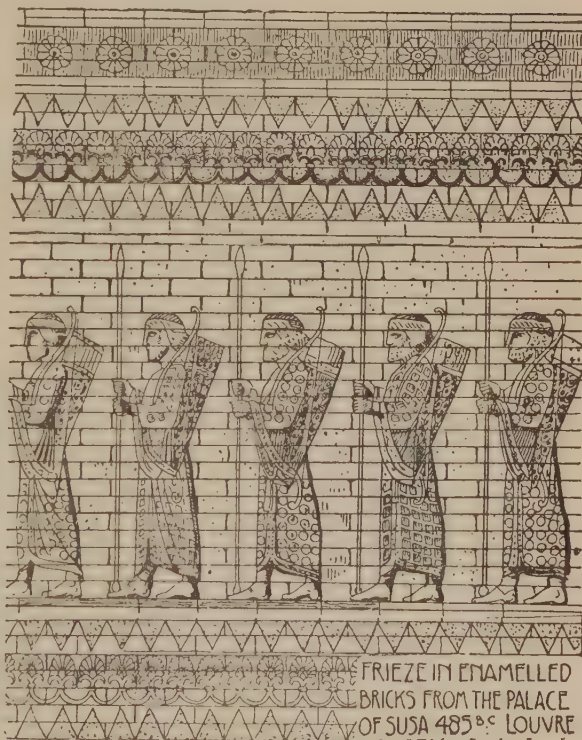 FRIEZE IN ENAMELLED
BRICKS FROM THE PALACE
OF SUSA 485 B.C LOUVRE